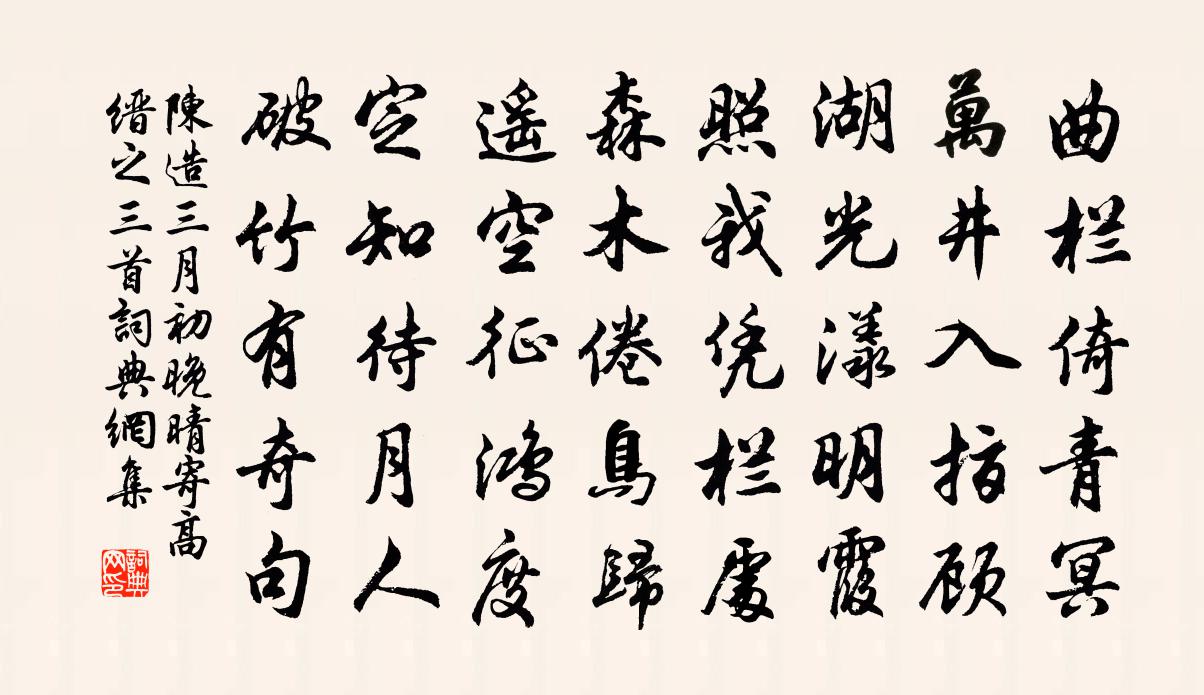 曲栏倚青冥
萬井入指顾
湖光漾明霞
照我凭栏處
森木倦鳥歸
遥空征鴻度
定知待月人
破竹有奇句
陳造三月初晚晴寄高
缙之三首詞典網集
詞典网印